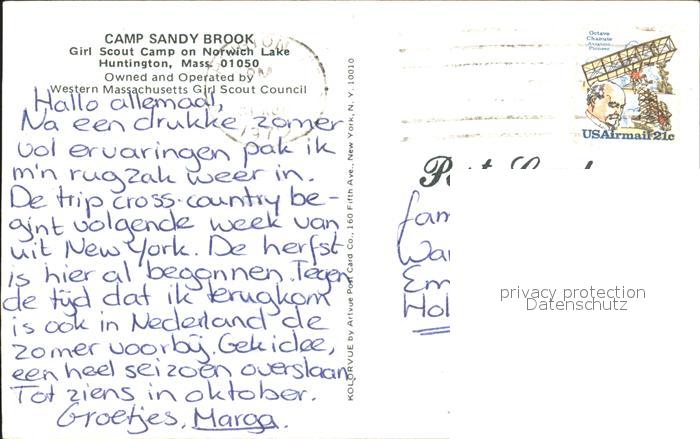 CAMP SANDY BROOK
Girl Scout Camp on Norwich Lake
Huntington, Mass. 01050
Owned and Operated by
Western Massachusetts Girl Scout Council
Hallo allemaal,
Na een drukke zomer
vol ervaringen pak ik
m'n rugzak weer in.
De trip cross-country be-
gint volgende week van
uit New York. De herfst
is hier al begonnen. Tegen
de tijd dat ik terugkom
is ook in Nederland de
zomer voorbij. Gek idee,
een heel seizoen overslaan.
Tot ziens in oktober.
Groetjes, Marga.
KOLORVUE by Artvue Post Card Co., 160 Fifth Ave., New York, N. Y. 10010
Octave
Chanute
Aviation
Pioneer
USAirmail 21c
fam
Wa
Em
Hol
privacy protection
Datenschutz